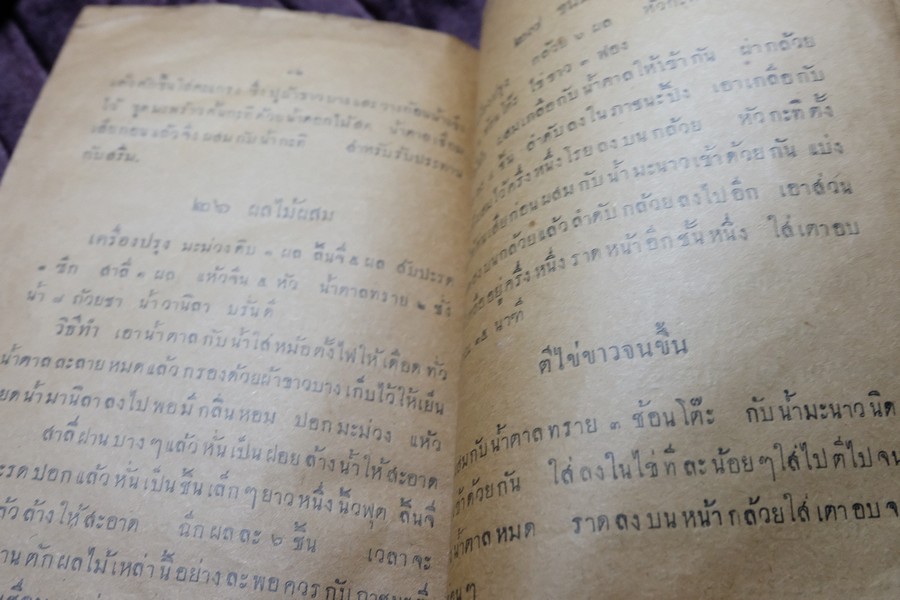 ไม้ ขูดมะพร้าวคั้นกะทิด้วยน้ำดอกไม้สด น้ำตาลเชื่อม
เสียก่อนแล้วจึงผสมกับน้ำกะทิ สำหรับรับประทาน
กับสริม.
๒๖ ผลไม้ผสม
เครื่องปรุง มะม่วงดิบ ๑ ผล ลิ้นจี่ ๕ ผล สับปะรด
๑ ซีก สาลี่ ๑ ผล แห้วจีน ๕ หัว น้ำตาลทราย ๒ ชั่ง
น้ำ ๗ ถ้วยชา น้ำวานิลา บรั่นดี
วิธีทำ เอาน้ำตาลกับน้ำใส่หม้อตั้งไฟให้เดือด ทัว
น้ำตาลละลายหมดแล้วกรองด้วยผ้าขาวบาง เก็บไว้ให้เย็น
ยดน้ำมานิลาลงไปพอมีกลิ่นหอม ปอกมะม่วง แห้ว
สาลี่ฝานบางๆแล้วหั่นเป็นฝอย ล้างน้ำให้สะอาด
ะรดปอกแล้วหั่นเป็นชิ้นเล็กๆยาวหนึ่งนิ้วฟุต ลิ้นจี่
ล้วล้างให้สะอาด ฉีกผลละ ๒ ชิ้น เวลาจะ
านตักผลไม้เหล่านี้อย่างละพอควรกับ
กล้วย ๖ ผล หัวกะ
ไข่ขาว ๓ ฟอง
ผสมเกลือกับน้ำตาลให้เข้ากัน ผ่ากล้วย
๕ ชิ้น ลำดับลงในภาชนะปิ้ง เอาเกลือกับ
ผสมไว้ครึ่งหนึ่งโรยลงบนกล้วย หัวกะทิตั้ง
เสียก่อนผสมกับน้ำมะนาวเข้าด้วยกัน แบ่ง
ลงบนกล้วยแล้วลำดับกล้วยลงไปอีก เอาส่วน
อยู่ครึ่งหนึ่งราดหน้าอีกชั้นหนึ่ง ใส่เตาอบ
๑๕ นาที
ตีไข่ขาวจนขึ้น
สมกับน้ำตาลทราย ๓ ช้อนโต๊ะ กับน้ำมะนาวนิด
ข้าด้วยกัน ใส่ลงในไข่ทีละน้อยๆใส่ไปตีไปจน
น้ำตาลหมด ราดลงบนหน้ากล้วยใส่เตาอบจ